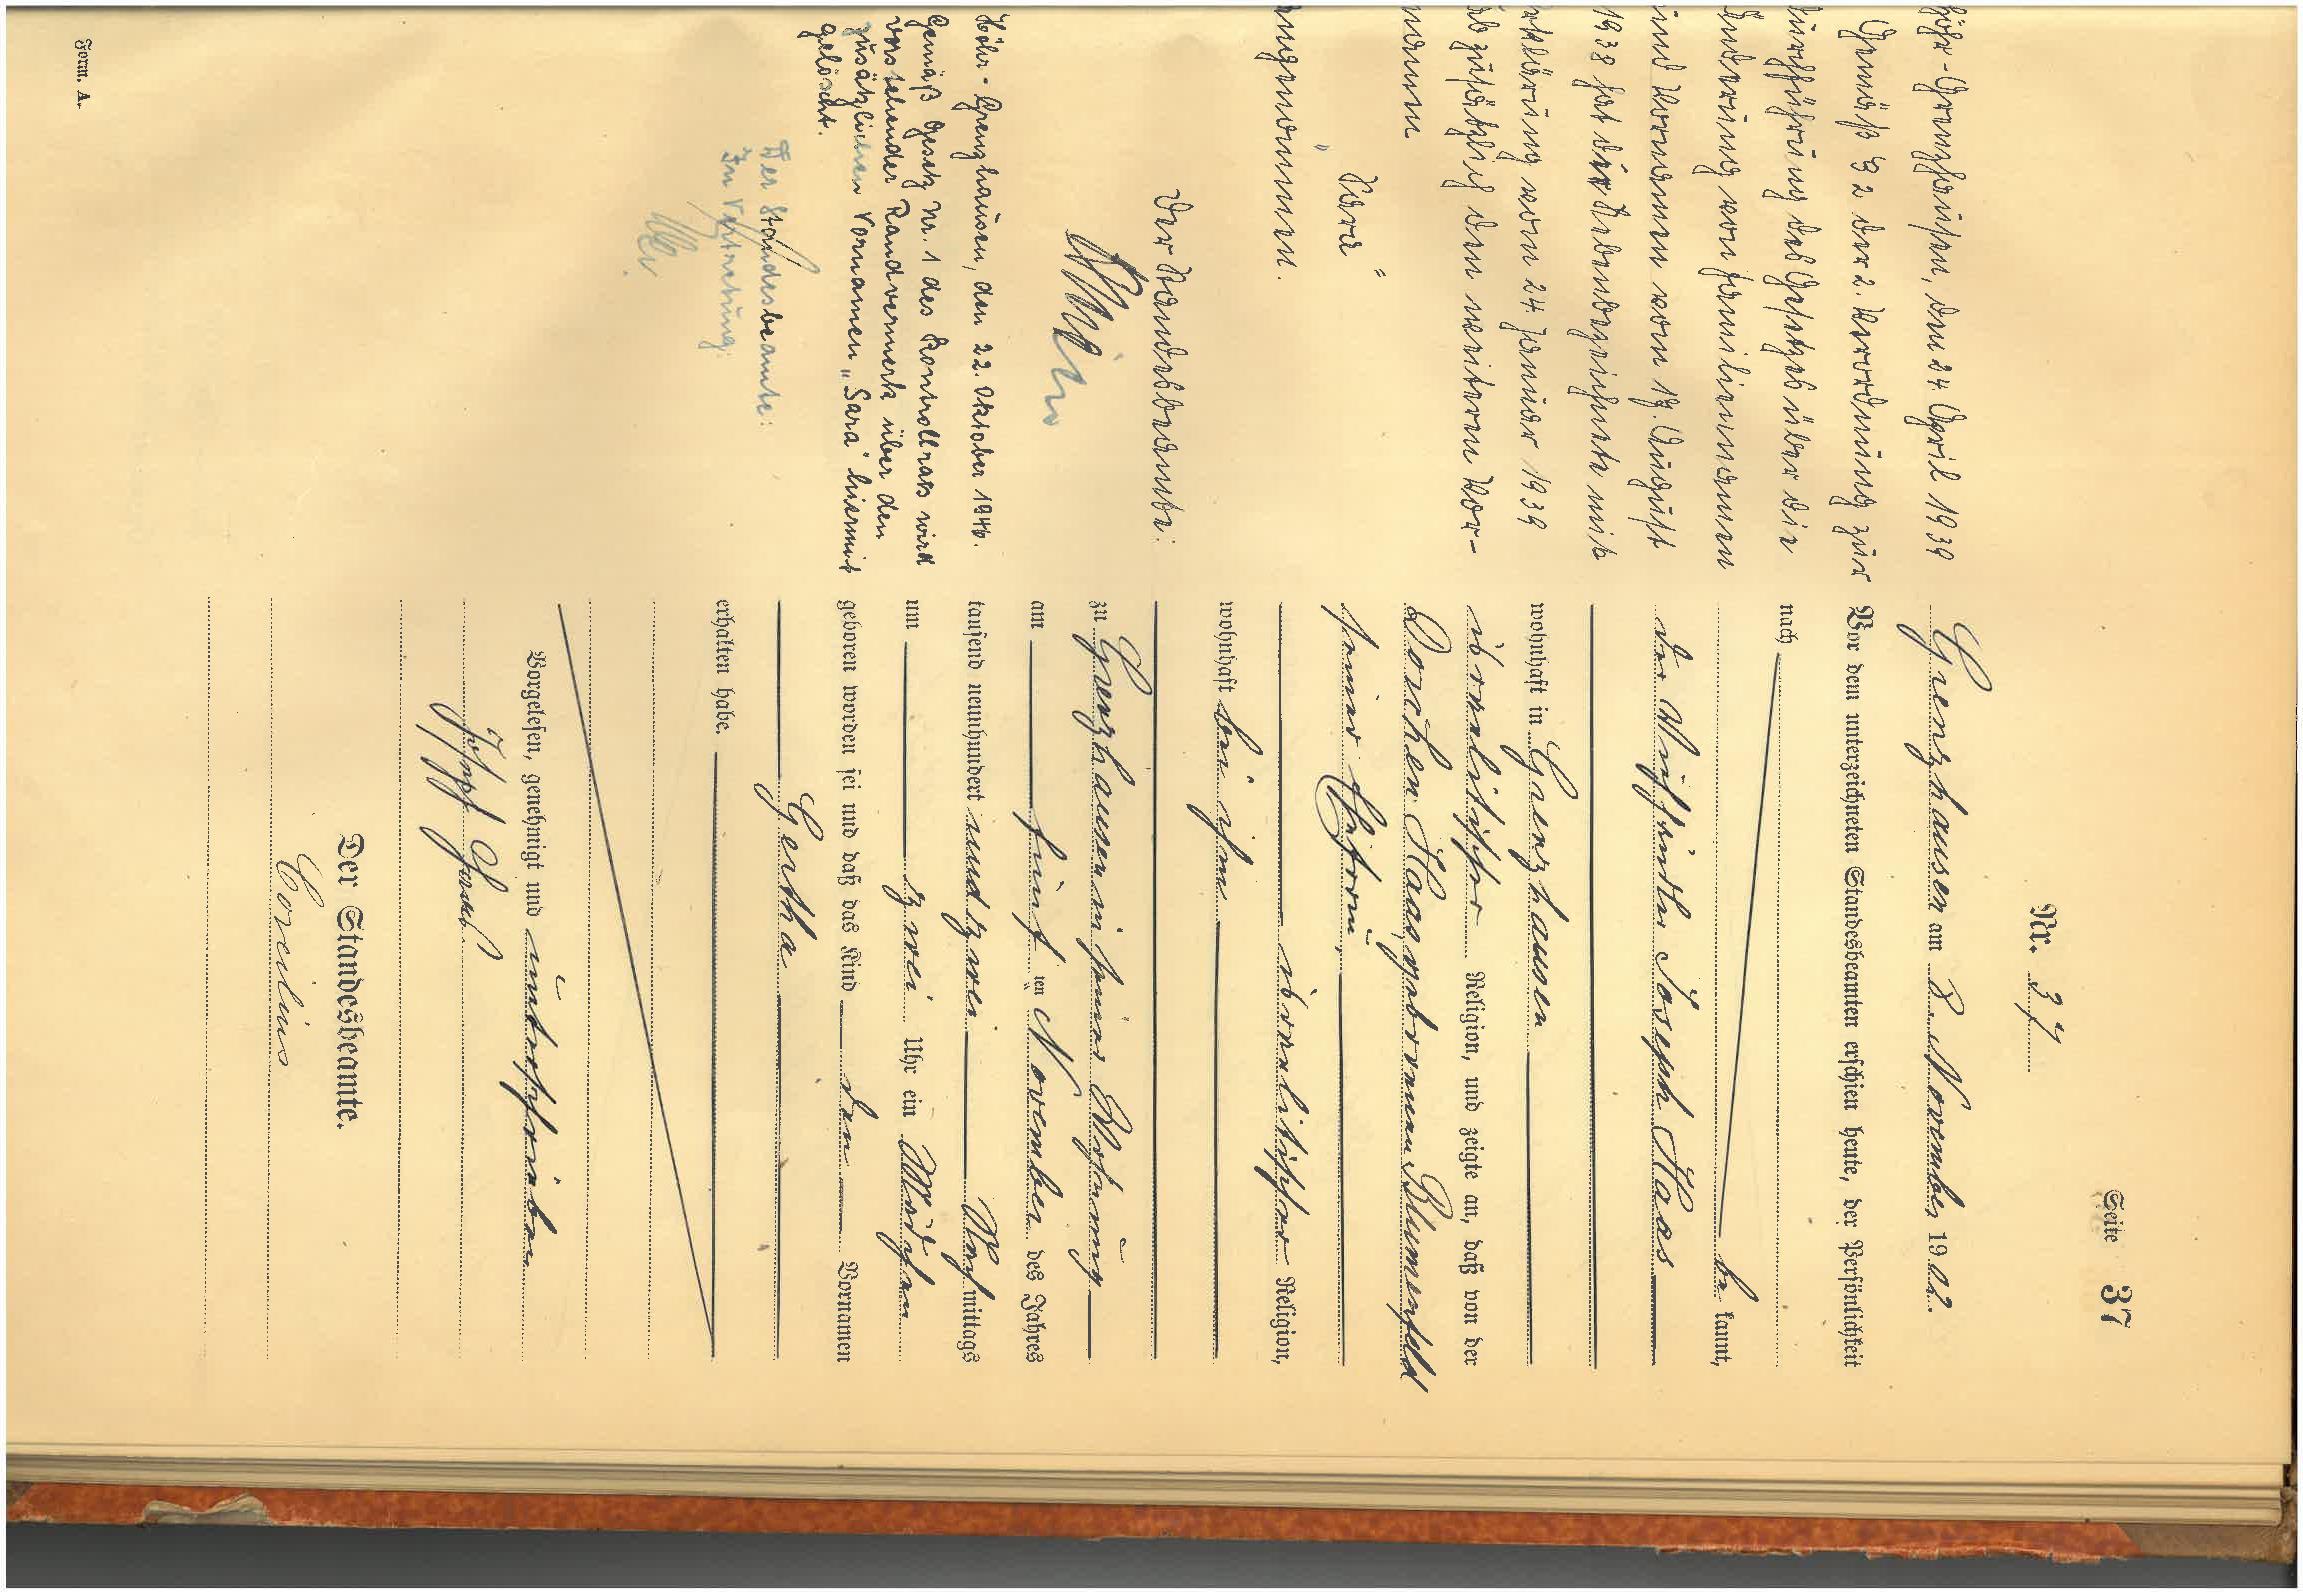 Seite 37
Nr. 37
Grenzhausen am 8. November 1902.
Vor dem unterzeichneten Standesbeamten erschien heute, der Persönlichkeit
nach
be kannt,
der Joseph Haas
wohnhaft in Grenzhausen
israelitischer Religion, und zeigte an, daß von der
Dorchen Haas, geborenen Blumenfeld
seiner Ehefrau,
israelitischer Religion,
wohnhaft bei ihm
zu Grenzhausen in seiner Wohnung
am fünf ten November des Jahres
tausend neunhundert und zwei Nachmittags
um zwei Uhr ein Mädchen
geboren worden sei und daß das Kind den Vornamen
Gertha
erhalten habe.
Vorgelesen, genehmigt und unterschrieben
Josef Haas
Der Standesbeamte.
Corcilius
Höhr-Grenzhausen, den 24 April 1939
Gemäß § 2 der 2. Verordnung zur
Durchführung des Gesetzes über die
Änderung von Familiennamen
und Vornamen vom 17. August
1938 hat die Nebenbezeichnete mit
Erklärung vom 24. Januar 1939
ab zusätzlich den weiteren Vor-
namen
"Sara"
angenommen.
Der Standesbeamte:
Höhr-Grenzhausen, den 22. Oktober 1946.
Gemäß Gesetz Nr. 1 des Kontrollrats wird
vorstehender Randvermerk über den
zusätzlichen Vornamen "Sara" hiermit
gelöscht.
Der Standesbeamte:
In Vertretung:
Form. A.